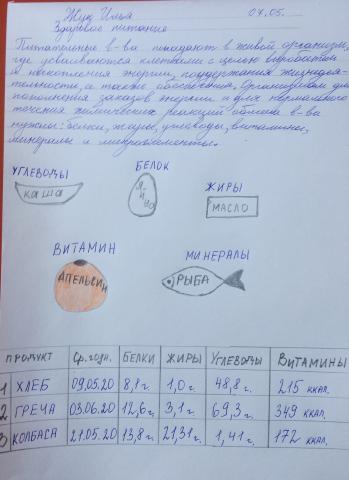 Жук Илья 07.05.
Здоровое питание
Питательные в-ва попадают в живой организм,
где усваиваются клетками с целью выработки
и накопления энергии, поддержания жизнедея-
тельности, а также обеспечения. Организмам для
пополнения заказов энергии и для нормального
течения химических реакций обмена в-ва
нужны: белки, жиры, углеводы, витамины,
минералы и микроэлементы.
УГЛЕВОДЫ БЕЛОК ЖИРЫ
КАША ЯЙЦО МАСЛО
ВИТАМИН МИНЕРАЛЫ
АПЕЛЬСИН РЫБА
ПРОДУКТ Ср. годн. БЕЛКИ ЖИРЫ Углеводы Витамины
1 ХЛЕБ 09.05.20 8,1 г. 1,0 г. 48,8 г. 215 ккал.
2 ГРЕЧА 03.06.20 12,6 г. 3,1 г. 69,3 г. 349 ккал.
3 КОЛБАСА 21.05.20 13,8 г. 21,31 г. 1,41 г. 172 ккал.